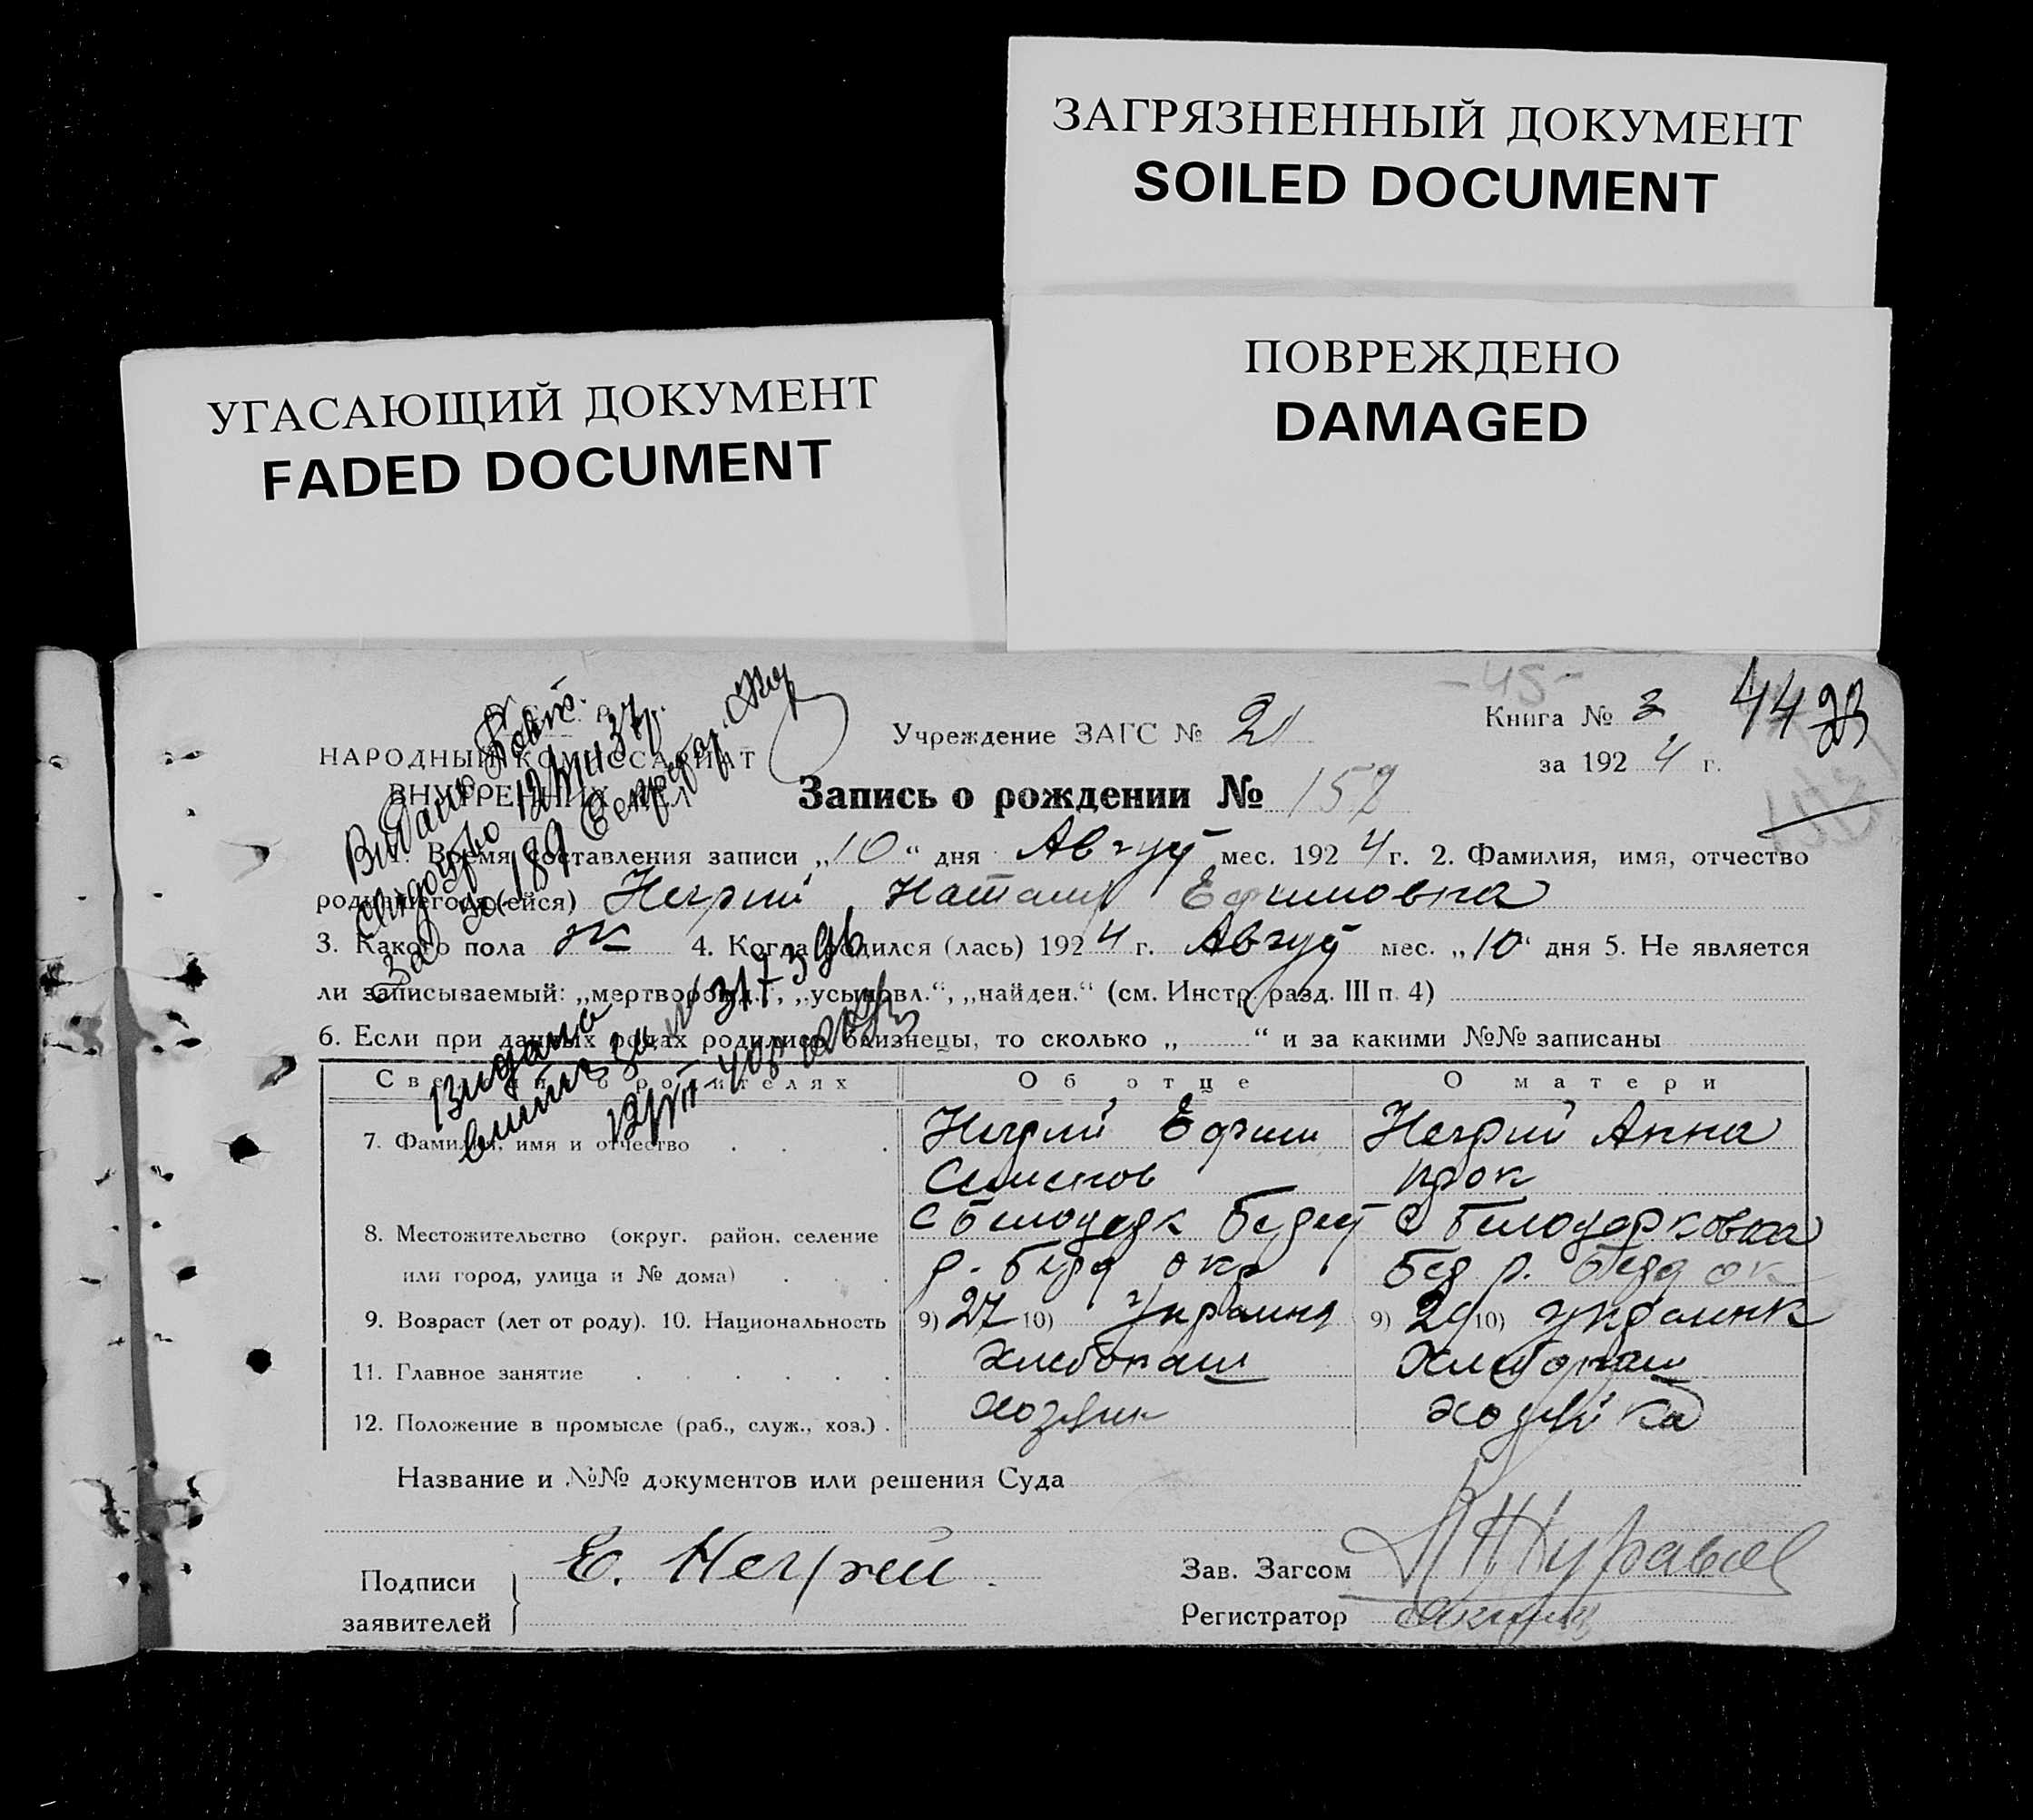 ЗАГРЯЗНЕННЫЙ ДОКУМЕНТ
SOILED DOCUMENT
УГАСАЮЩИЙ ДОКУМЕНТ
FADED DOCUMENT
ПОВРЕЖДЕНО
DAMAGED
-45-
Книга № 3
44
за 1924 г.
НАРОДНЫЙ КОМИССАРИАТ
ВНУТРЕННИХ
Учреждение ЗАГС № 21
Запись о рождении № 152
1. Время составления записи „10“ дня Август мес. 1924 г. 2. Фамилия, имя, отчество
родившегося (ейся) Негрий Ефимовна
3. Какого пола ж 4. Когда родился (лась) 1924 г. Август мес. „10“ дня 5. Не является
ли записываемый: „мертворожд.“, „усыновл.“, „найден.“ (см. Инстр. разд. III п. 4)
6. Если при данных родах родились близнецы, то сколько „ “ и за какими №№ записаны
Сведения о родителях Об отце О матери
7. Фамилия, имя и отчество Негрий Ефим Негрий Анна
Семенов Прок
8. Местожительство (округ. район. селение с Білоцерк с Білоцерковка
или город, улица и № дома) р. Берд окр р. Берд ок
9. Возраст (лет от роду). 10. Национальность 9) 27 10) Украинц 9) 29 10) Украинк
11. Главное занятие Хлебопаш Хлебопаш
12. Положение в промысле (раб., служ., хоз.) хозяин хозяйка
Название и №№ документов или решения Суда
Подписи
заявителей
Е. Негрей
Зав. Загсом
Регистратор